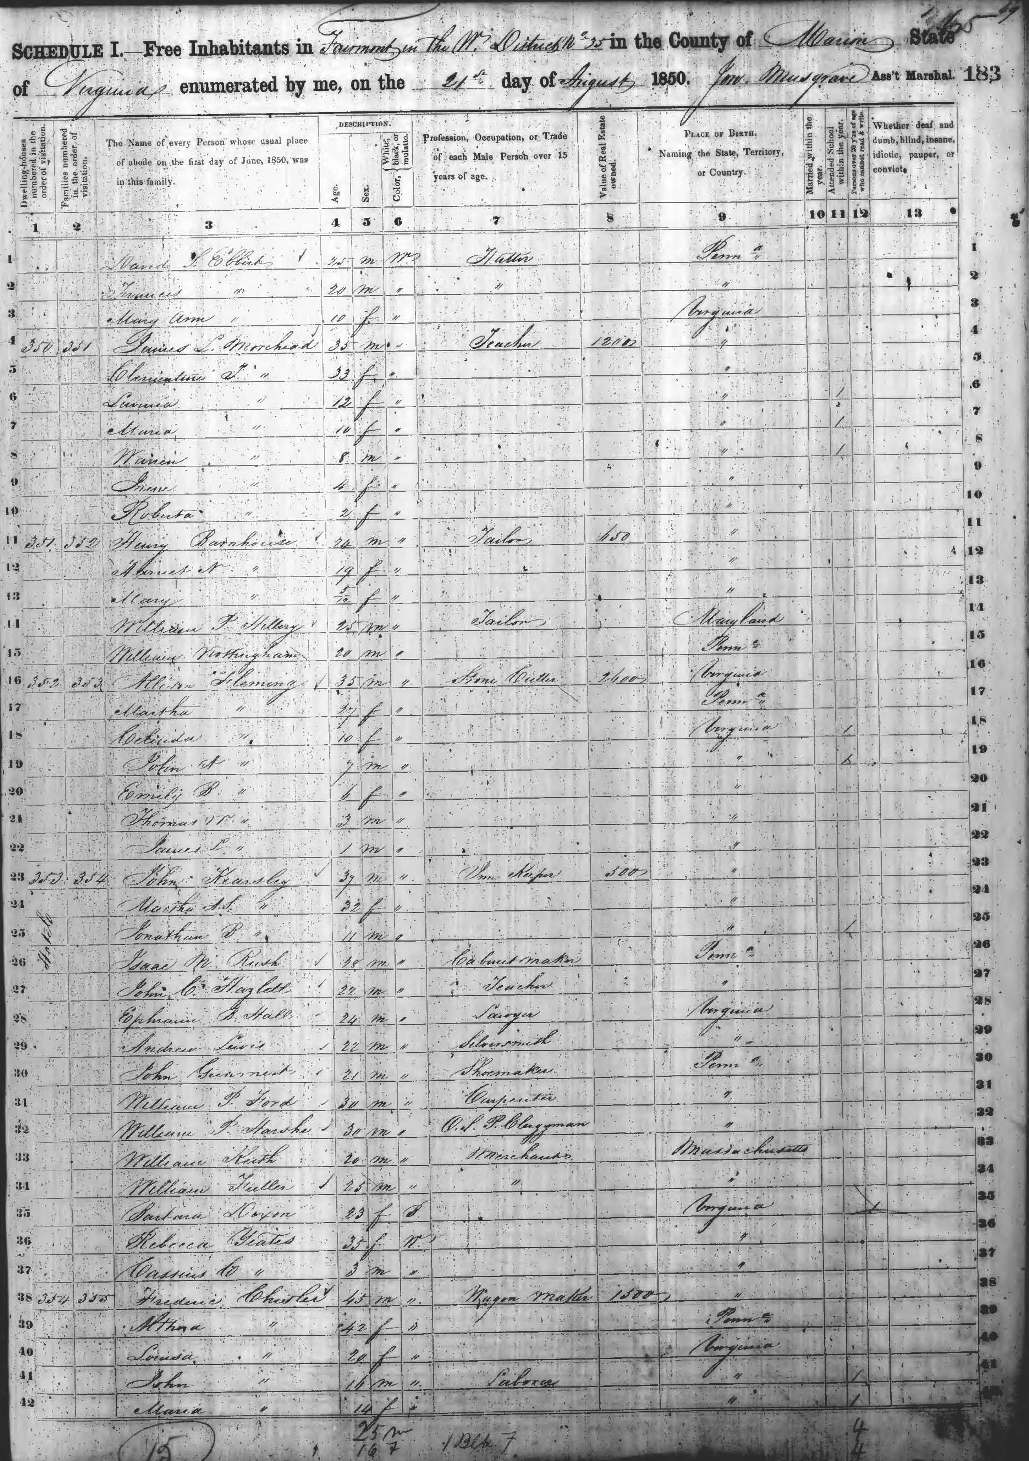 SCHEDULE I. Free Inhabitants in Fairmont in the W. District No 35 in the County of Marion State
of Virginia enumerated by me, on the 21st day of August 1850. Jno. Musgrave Ass't Marshal. 183
Dwelling-houses numbered in the order of visitation.
Families numbered in the order of visitation.
The Name of every Person whose usual place of abode on the first day of June, 1850, was in this family.
DESCRIPTION.
Age.
Sex.
Color, White, black, or mulatto.
Profession, Occupation, or Trade of each Male Person over 15 years of age.
Value of Real Estate owned.
PLACE OF BIRTH. Naming the State, Territory, or Country.
Married within the year.
Attended School within the year.
Persons over 20 y'rs of age who cannot read & write.
Whether deaf and dumb, blind, insane, idiotic, pauper, or convict.
1 2 3 4 5 6 7 8 9 10 11 12 13
1 David 25 m W Hatter Penna 1
2 Francis " 20 m " " " 2
3 Mary Ann " 10 f " Virginia 3
4 350 351 James L. Morehead 35 m " Teacher 1200 " 4
5 " 33 f " " 5
6 Lavinia " 12 f " " 1 6
7 Maria " 10 f " " 1 7
8 Warren " 8 m " " 1 8
9 Irene " 4 f " " 9
10 Roberta " 2 f " " 10
11 351 352 Henry Barnhouse 24 m " Tailor 450 " 11
12 Harriet N " 19 f " " 12
13 Mary " f " " 13
14 William P. Hillery 25 m " Tailor Maryland 14
15 William Nottingham 20 m " Penna 15
16 352 353 Allison Fleming 35 m " Stone Cutter 2400 Virginia 16
17 Martha " 37 f " Penna 17
18 Celinda " 10 f " Virginia 1 18
19 John N " 7 m " " 1 19
20 Emily B " 6 f " " 20
21 Thomas W " 3 m " " 21
22 James L " 1 m " " 22
23 353 354 John Kearsley 37 m " Inn Keeper 500 " 23
24 Martha A.S. " 32 f " 24
25 Hotel Jonathan B " 11 m " " 1 25
26 Isaac M. Rush 28 m " Cabinet maker Penna 26
27 John C. Hazlett 22 m " Teacher " 27
28 Ephraim B. Hall 24 m " Lawyer Virginia 28
29 Andrew Lewis 22 m " Silversmith " 29
30 John 21 m " Shoemaker Penna 30
31 William P. Ford 30 m " Carpenter " 31
32 William P. Harshe 30 m " O.S.P. Clergyman " 32
33 William Keith 20 m " Merchant Massachusetts 33
34 William Fuller 25 m " " " 34
35 Barbara Dixon 23 f B Virginia 35
36 Rebecca Yeates 35 f W " 36
37 Cassius C " 3 m " " 37
38 354 355 Frederic Chisler 45 m " Wagon maker 1500 " 38
39 " 42 f " Penna 39
40 Louisa " 20 f " Virginia 40
41 John " 16 m " Laborer " 1 41
42 Maria " 14 f " " 1 42
25 m 4
15 16 f 1 Blk f 4